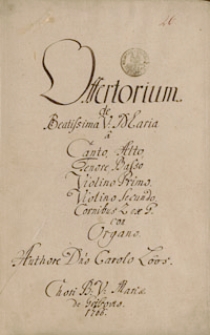 Offertorium
de
Beatissima V. Maria
â
Canto, Alto,
Tenore Basso
Violino Primo,
Violino Secundo,
Cornibus
con
Organo.
Authore Dno Carolo Loos.
Chori B. V. Mariæ
de